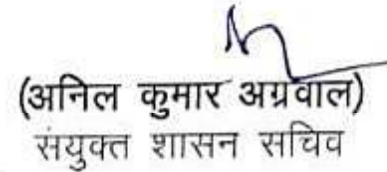 (अनिल कुमार अग्रवाल)
संयुक्त शासन सचिव